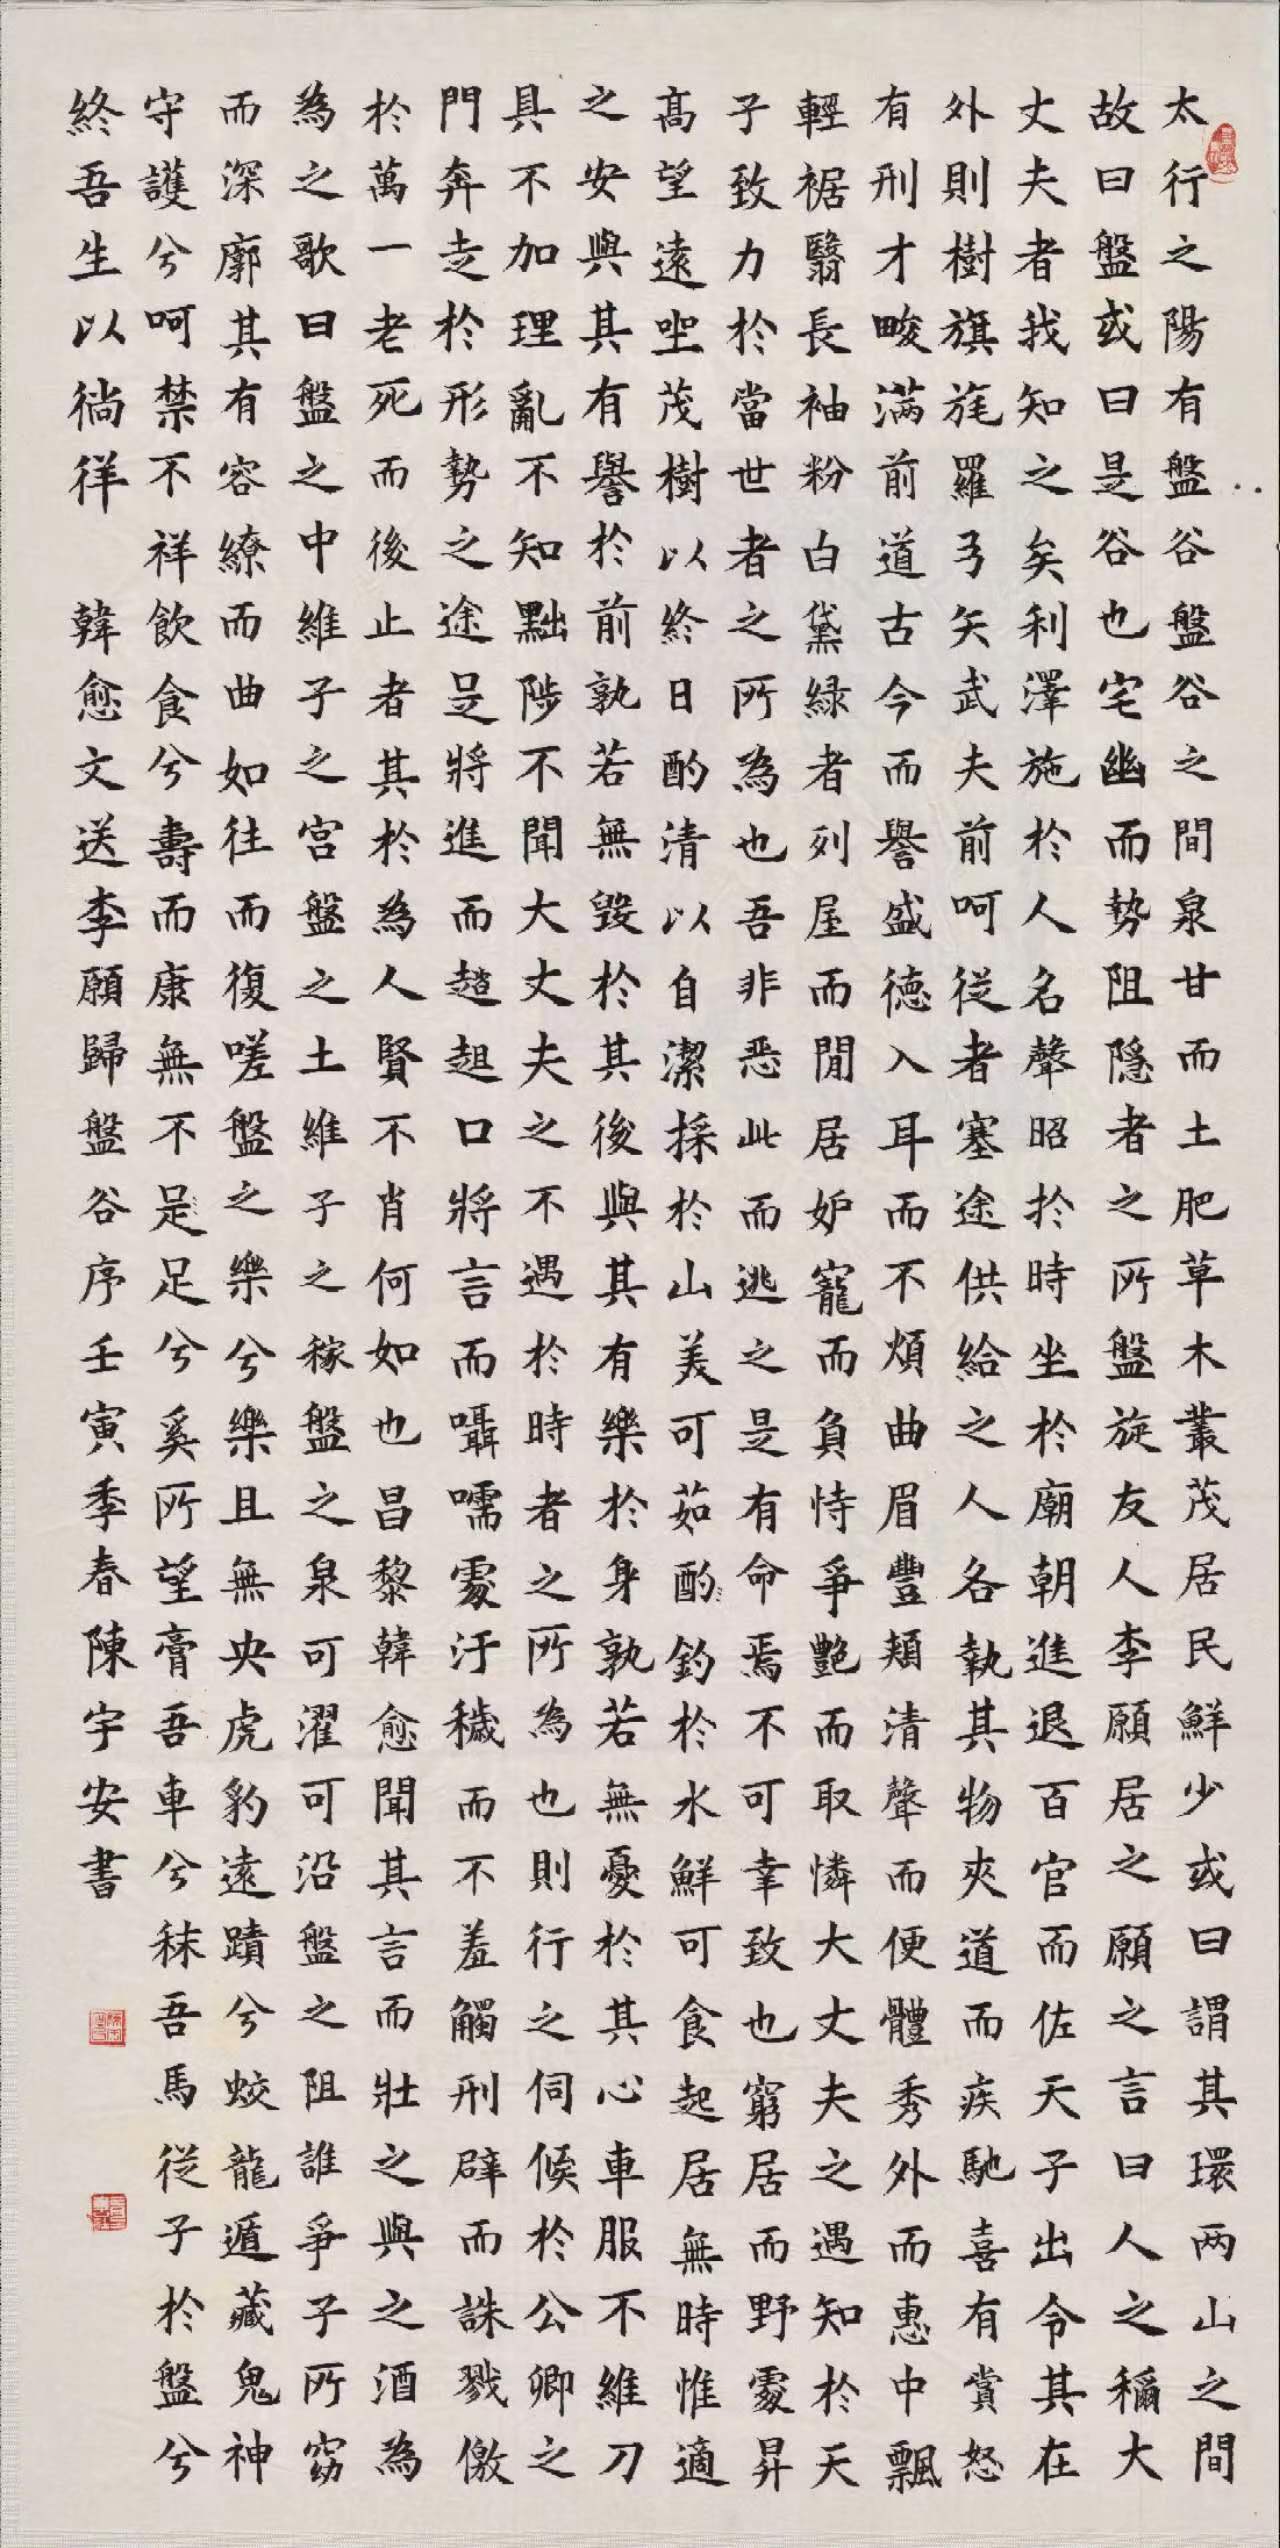 太行之陽有盤谷盤谷之間泉甘而土肥草木叢茂居民鮮少或曰謂其環两山之間
故曰盤或曰是谷也宅幽而勢阻隐者之所盤旋友人李願居之願之言曰人之稱大
丈夫者我知之矣利澤施於人名聲昭於時坐於廟朝進退百官而佐天子出令其在
外則樹旗旄羅弓矢武夫前呵從者塞途供給之人各執其物夾道而疾馳喜有賞怒
有刑才畯満前道古今而譽盛德入耳而不煩曲眉豐頰清聲而便體秀外而惠中飄
輕裾翳長袖粉白黛緑者列屋而閒居妒寵而負恃爭艶而取憐大丈夫之遇知於天
子致力於當世者之所為也吾非恶此而逃之是有命焉不可幸致也窮居而野處昇
髙望遠坐茂樹以終日酌清以自潔採於山美可茹酌釣於水鮮可食起居無時惟適
之安與其有譽於前孰若無毀於其後與其有樂於身孰若無憂於其心車服不維刀
具不加理亂不知黜陟不聞大丈夫之不遇於時者之所為也則行之伺候於公卿之
門奔走於形勢之途是將進而趦趄口將言而囁嚅處汙穢而不羞觸刑辟而誅戮儌
於萬一老死而後止者其於為人賢不肖何如也昌黎韓愈聞其言而壯之與之酒為
為之歌曰盤之中維子之宫盤之土維子之稼盤之泉可濯可沿盤之阻誰爭子所窈
而深廓其有容繚而曲如往而復嗟盤之樂兮樂且無央虎豹遠蹟兮蛟龍遁藏鬼神
守護兮呵禁不祥飲食兮壽而康無不是足兮奚所望膏吾車兮秣吾馬從子於盤兮
終吾生以徜徉　韓愈文送李願歸盤谷序壬寅季春陳宇安書